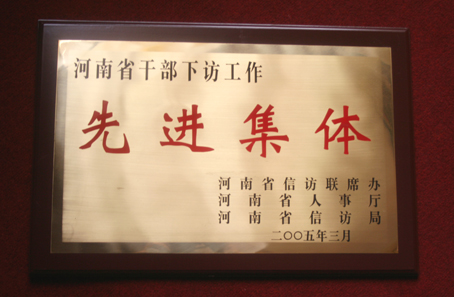 河南省干部下访工作
先进集体
河南省信访联席办
河南省人事厅
河南省信访局
二〇〇五年三月